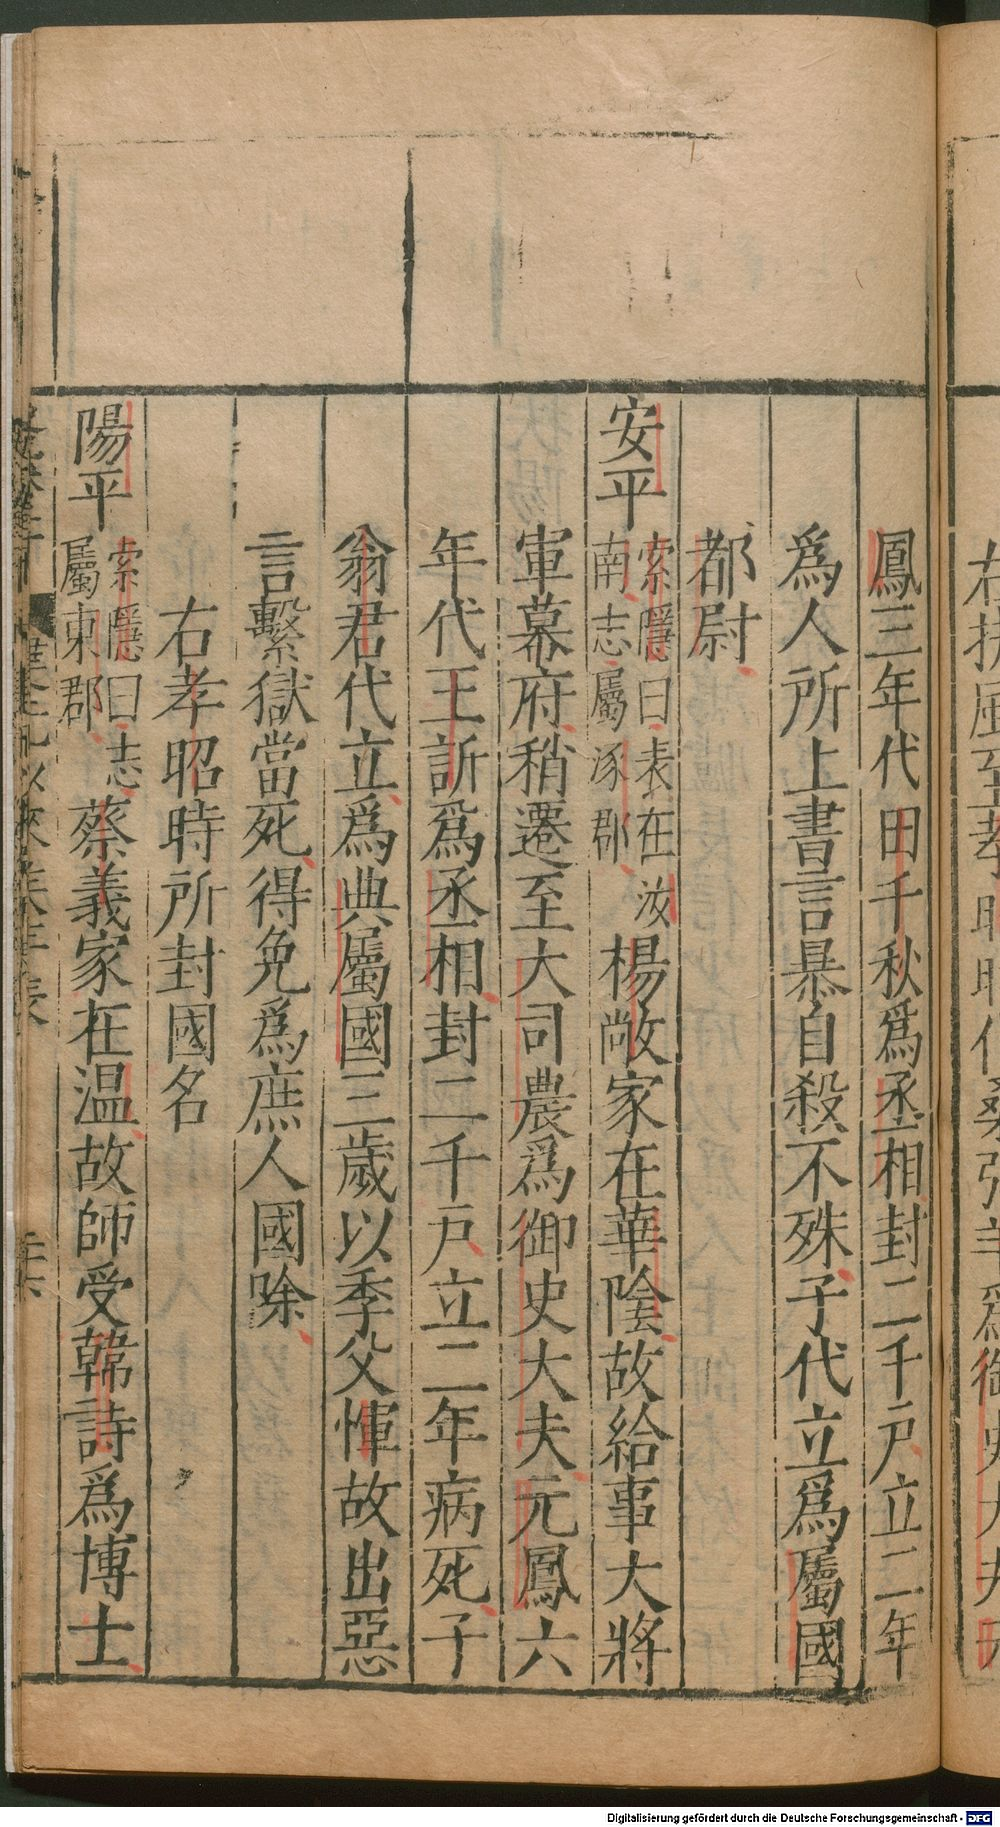 鳳三年代田千秋爲丞相封二千戶立二年
爲人所上書言暴自殺不殊子代立爲屬國
都尉
安平 索隱曰表在汝南志屬涿郡 楊敞家在華陰故給事大將
軍幕府稍遷至大司農爲御史大夫元鳳六
年代王訢爲丞相封二千戶立二年病死子
翁君代立爲典屬國三歲以季父惲故出惡
言繫獄當死得免爲庶人國除
右孝昭時所封國名
陽平 索隱曰志屬東郡 蔡義家在温故師受韓詩爲博士
Digitalisierung gefördert durch die Deutsche Forschungsgemeinschaft - DFG